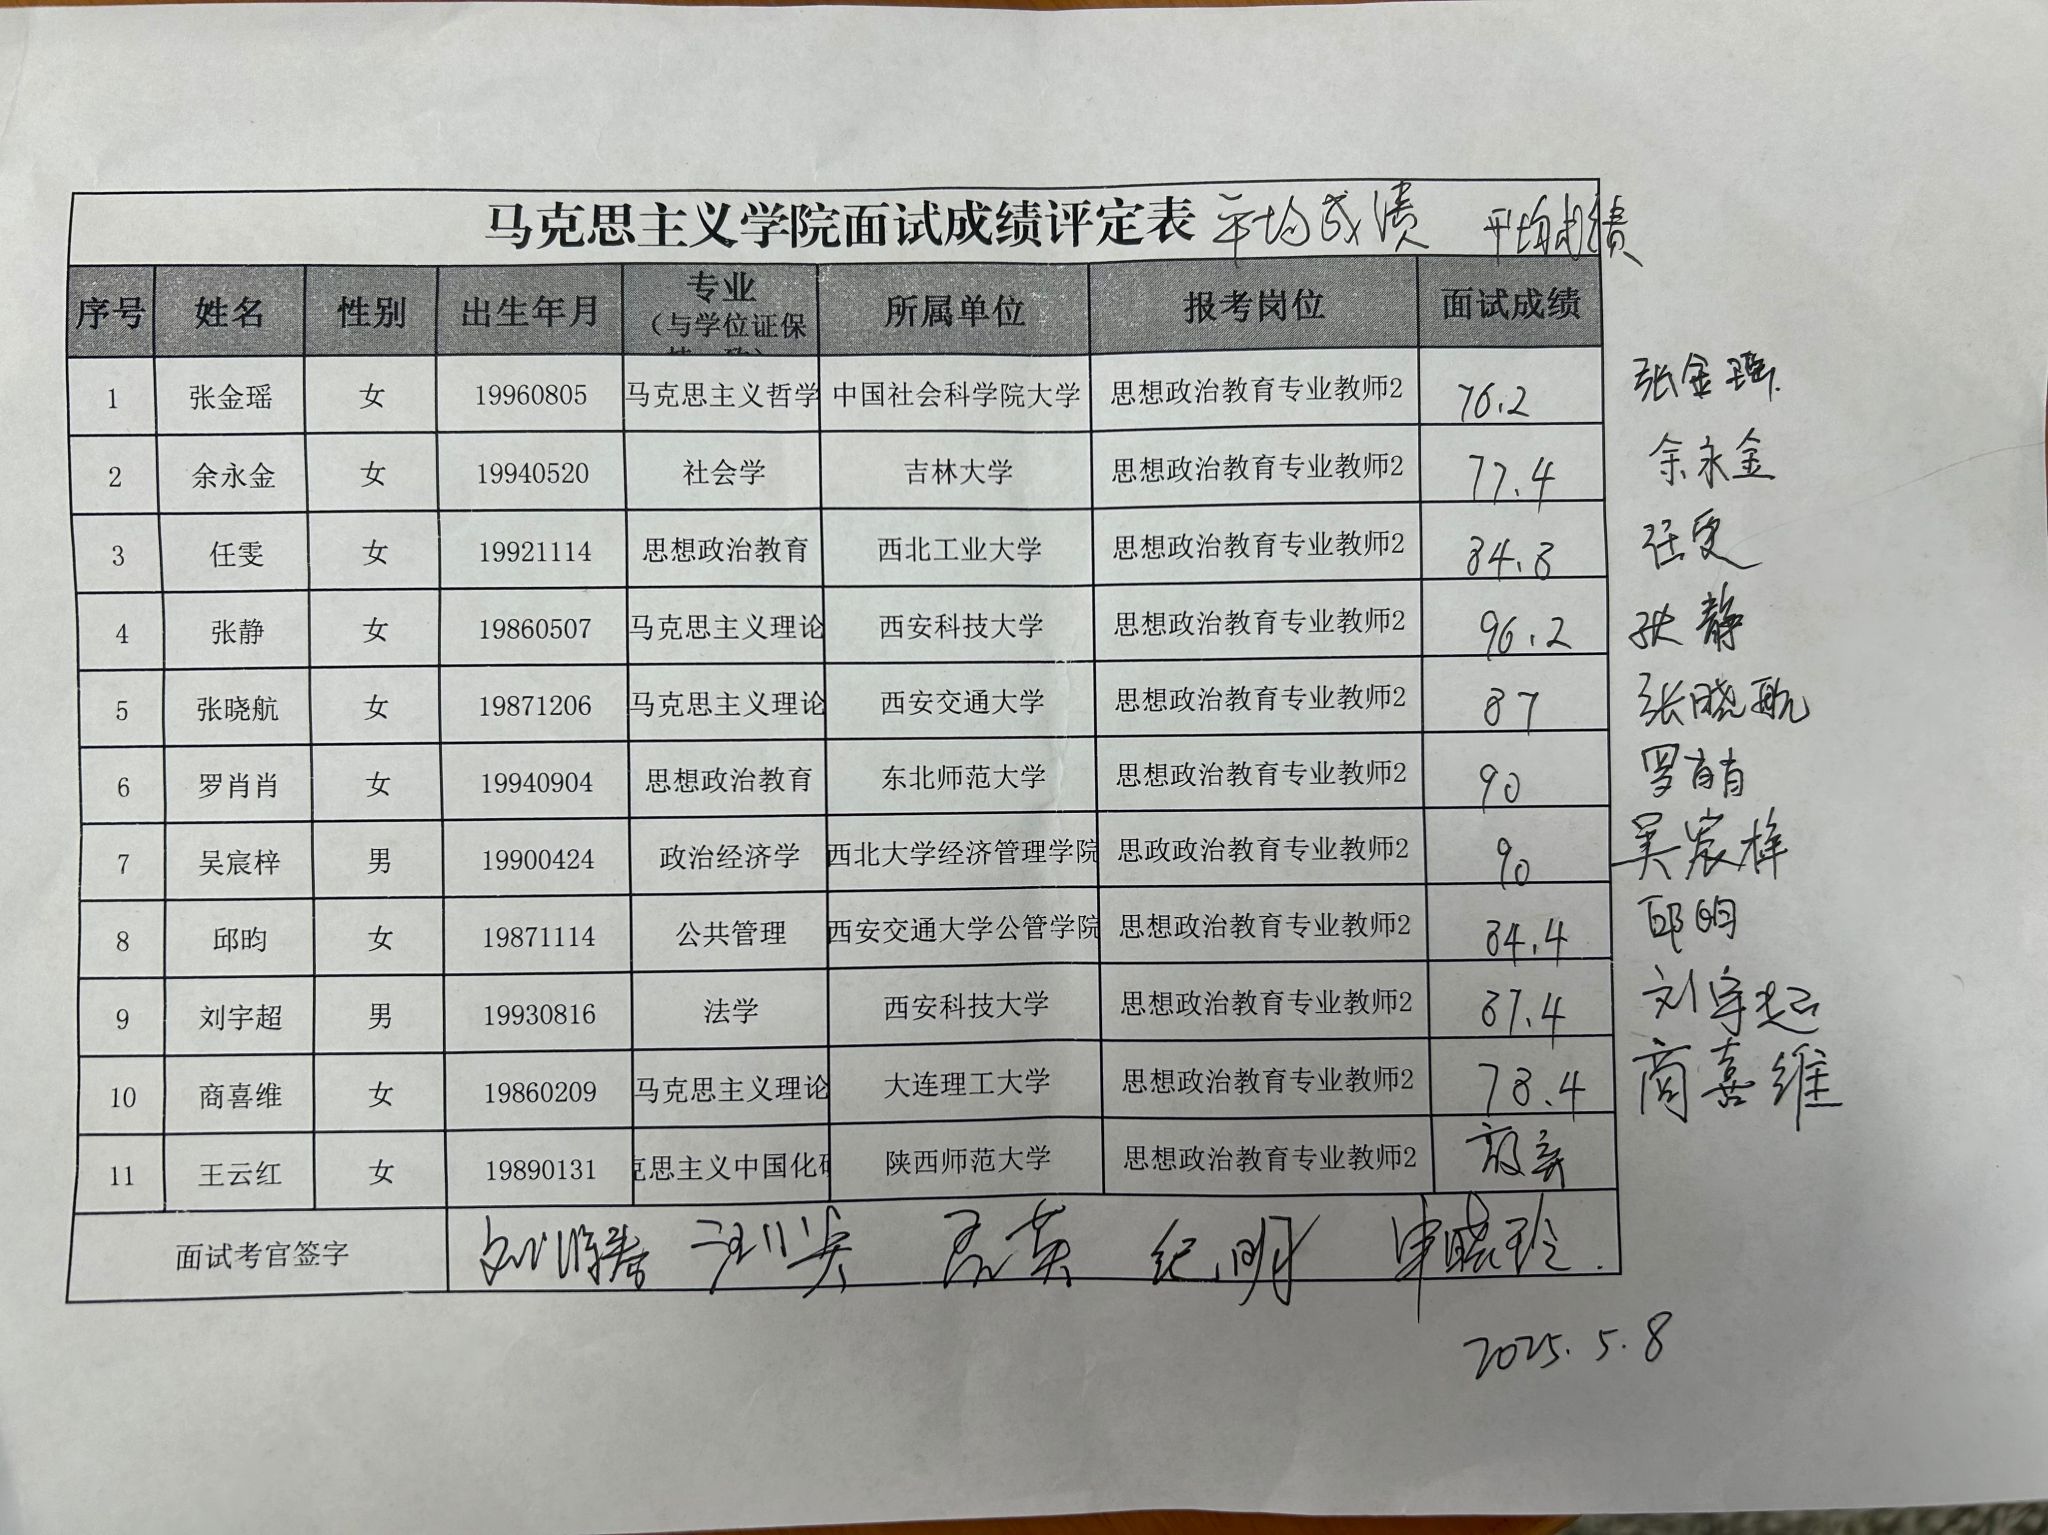 马克思主义学院面试成绩评定表 平均成绩 平均成绩
序号 姓名 性别 出生年月 专业（与学位证保 所属单位 报考岗位 面试成绩
1 张金瑶 女 19960805 马克思主义哲学 中国社会科学院大学 思想政治教育专业教师2 76.2 张金瑶
2 余永金 女 19940520 社会学 吉林大学 思想政治教育专业教师2 77.4 余永金
3 任雯 女 19921114 思想政治教育 西北工业大学 思想政治教育专业教师2 84.8 任雯
4 张静 女 19860507 马克思主义理论 西安科技大学 思想政治教育专业教师2 96.2 张静
5 张晓航 女 19871206 马克思主义理论 西安交通大学 思想政治教育专业教师2 87 张晓航
6 罗肖肖 女 19940904 思想政治教育 东北师范大学 思想政治教育专业教师2 90 罗肖肖
7 吴宸梓 男 19900424 政治经济学 西北大学经济管理学院 思政政治教育专业教师2 90 吴宸梓
8 邱昀 女 19871114 公共管理 西安交通大学公管学院 思想政治教育专业教师2 84.4 邱昀
9 刘宇超 男 19930816 法学 西安科技大学 思想政治教育专业教师2 87.4 刘宇超
10 商喜维 女 19860209 马克思主义理论 大连理工大学 思想政治教育专业教师2 78.4 商喜维
11 王云红 女 19890131 克思主义中国化研 陕西师范大学 思想政治教育专业教师2 放弃
面试考官签字 纪明
2025.5.8